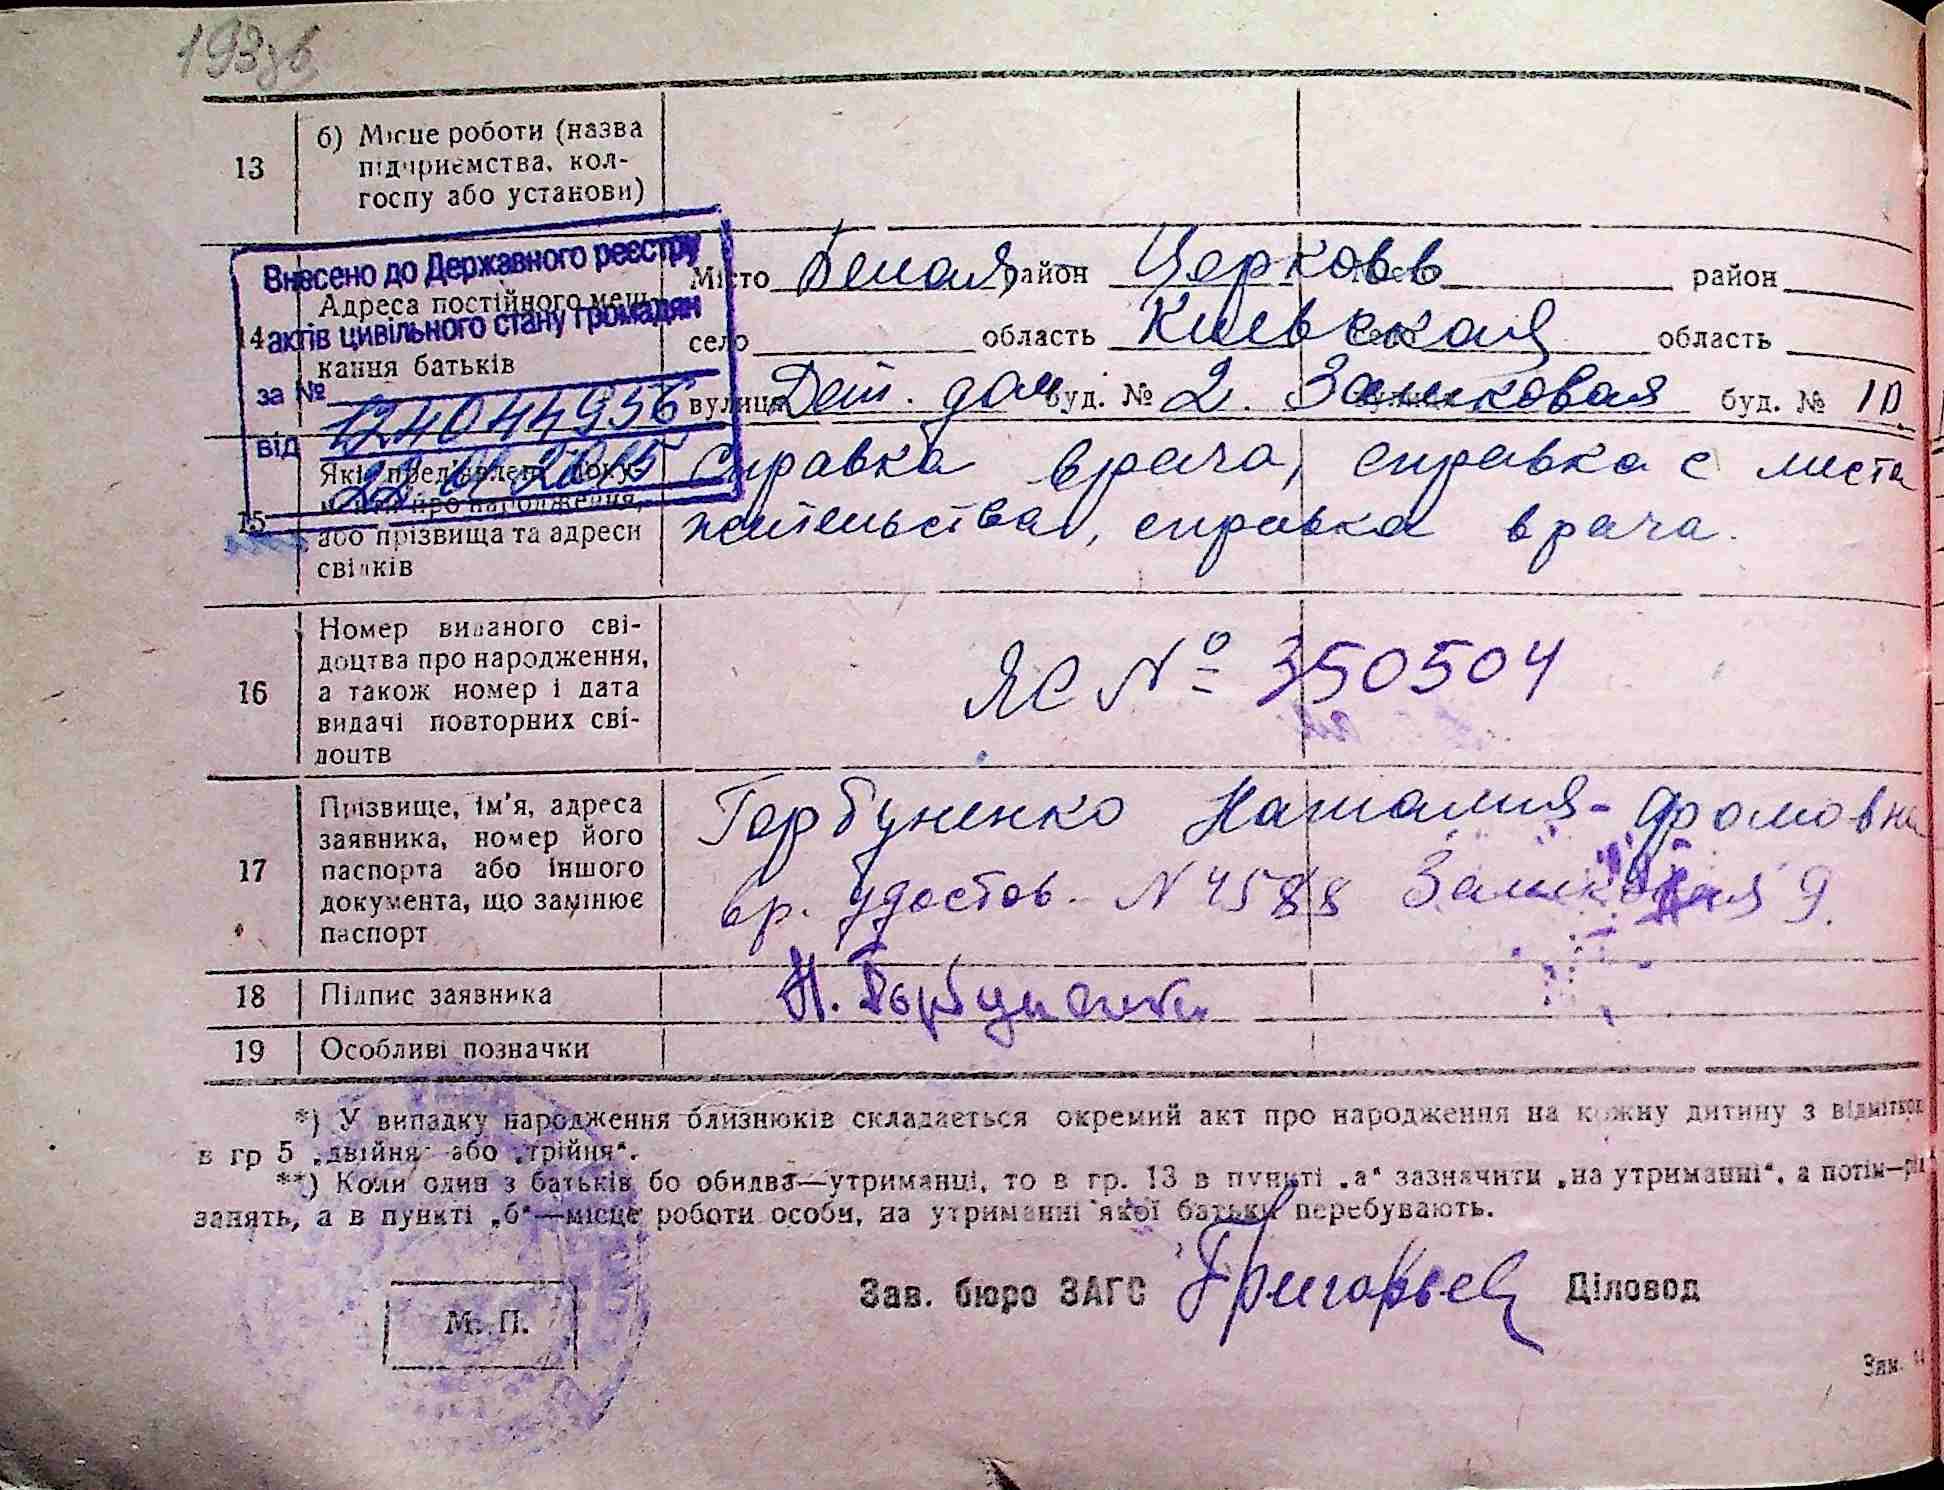 193зв.
13
б) Місце роботи (назва
підприємства, кол-
госпу або установи)
Внесено до Державного реєстру
актів цивільного стану громадян
за № 124044956
від
14
Адреса постійного меш-
кання батьків
Місто Белая район Церковь район
село область Киевская область
вулиця Дет. дом буд. № 2. Замковая буд. № 10.
15
Які пред'явлені доку-
менти про народження,
або прізвища та адреси
свідків
Справка врача, справка с места
жительства, справка врача.
16
Номер виданого сві-
доцтва про народження,
а також номер і дата
видачі повторних сві-
доцтв
ЯС № 350504
17
Прізвище, ім'я, адреса
заявника, номер його
паспорта або іншого
документа, що замінює
паспорт
Горбуненко Наталия - Фомовна
вр. удостов. N 4588 Замковая 9.
18
Підпис заявника
Н. Горбуненко
19
Особливі позначки
*) У випадку народження близнюків складається окремий акт про народження на кожну дитину з відміткою
в гр 5 „двійня“ або „трійня“.
**) Коли один з батьків бо обидва—утриманці, то в гр. 13 в пункті „а“ зазначити „на утриманні“, а потім—рід
занять, а в пункті „б“—місце роботи особи, на утриманні якої батьки перебувають.
Зав. бюро ЗАГС Григорьев Діловод
М. П.
Зам.